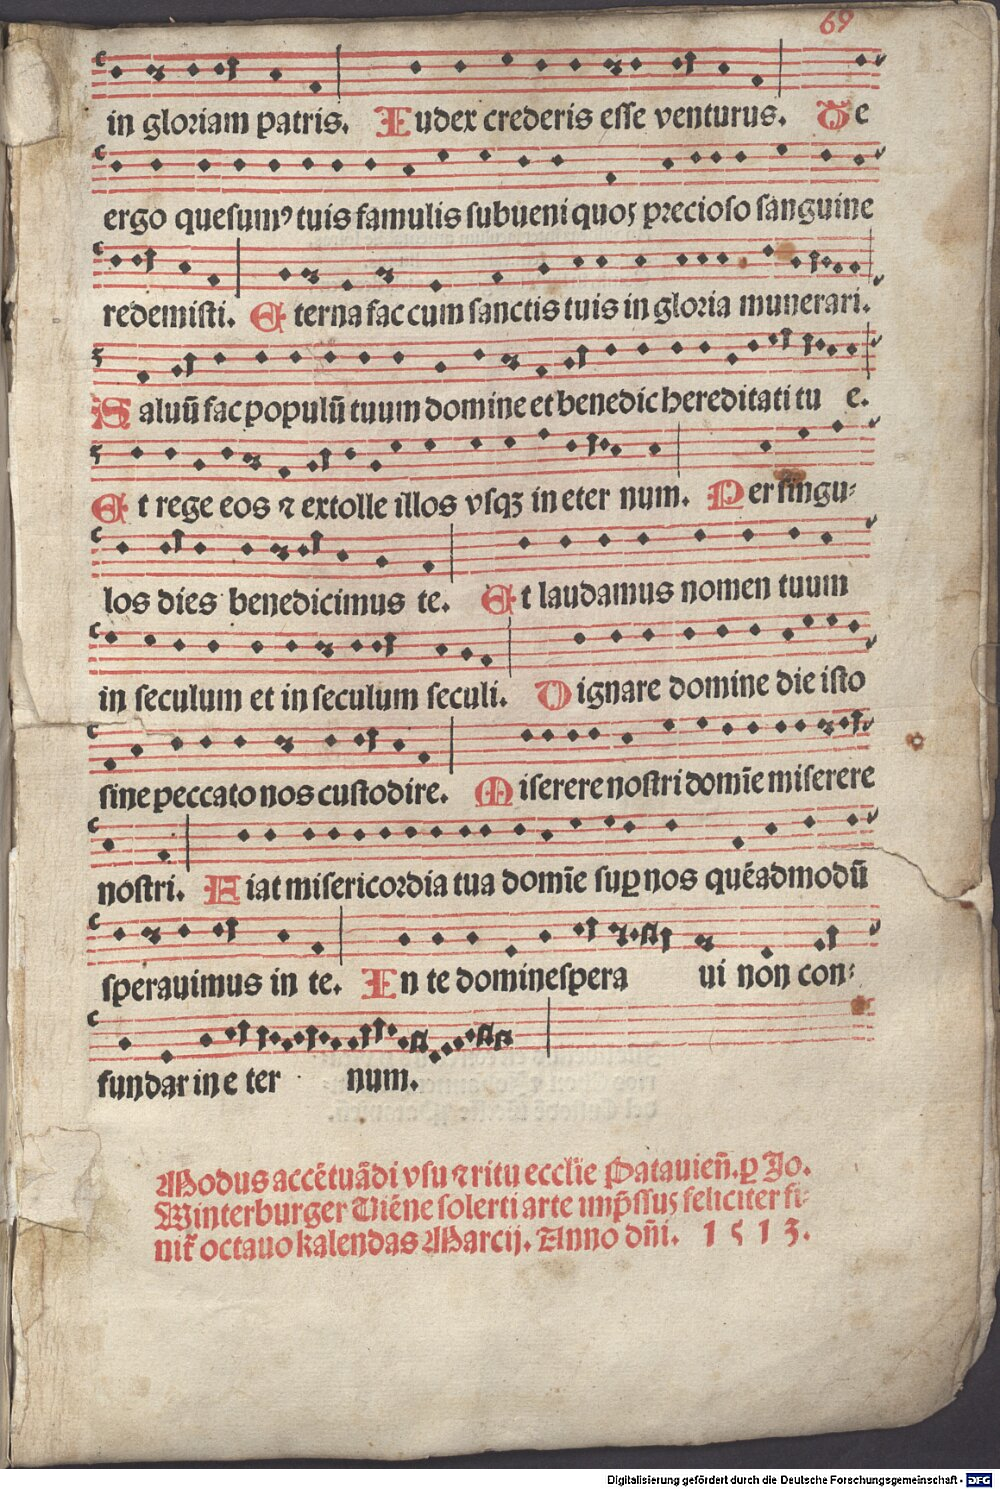 69
in gloriam patris. Iudex crederis esse venturus. Te
ergo quesumꝰ tuis famulis subueni quoꝫ precioso sanguine
redemisti. Eterna fac cum sanctis tuis in gloria munerari.
Saluū fac populū tuum domine et benedic hereditati tu e.
Et rege eos ⁊ extolle illos vsqꝫ in eter num. Per singu⸗
los dies benedicimus te. Et laudamus nomen tuum
in seculum et in seculum seculi. Dignare domine die isto
sine peccato nos custodire. Miserere nostri domīe miserere
nostri. Fiat misericordia tua domīe suꝑ nos quēadmodū
sperauimus in te. In te domine spera ui non con⸗
fundar in e ter num.
Modus accētuādi vsu ⁊ ritu ecclīe Patauieñ. ꝑ Jo.
Winterburger Viēne solerti arte imp̄ssuꝫ feliciter fi⸗
nit᷑ octauo kalendas Marcij. Anno dñi. 1513.
Digitalisierung gefördert durch die Deutsche Forschungsgemeinschaft - DFG